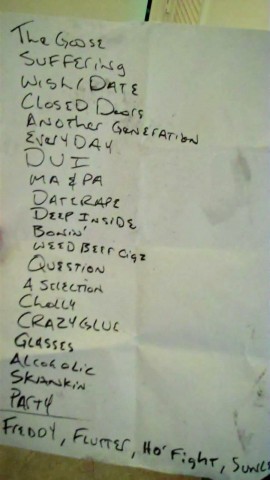 The Goose
SUFFERING
WISH/DATE
CLOSED Doors
ANOTHER GENERATION
EVERYDAY
DUI
MA & PA
DATERAPE
DEEP INSIDE
BONIN'
WEED BEER CIGZ
QUESTION
A SELECTION
CHOLLY
CRAZYGLUE
GLASSES
ALCOHOLIC
SKANKIN
PARTY
FREDDY, FLUTTER, HO' FIGHT,